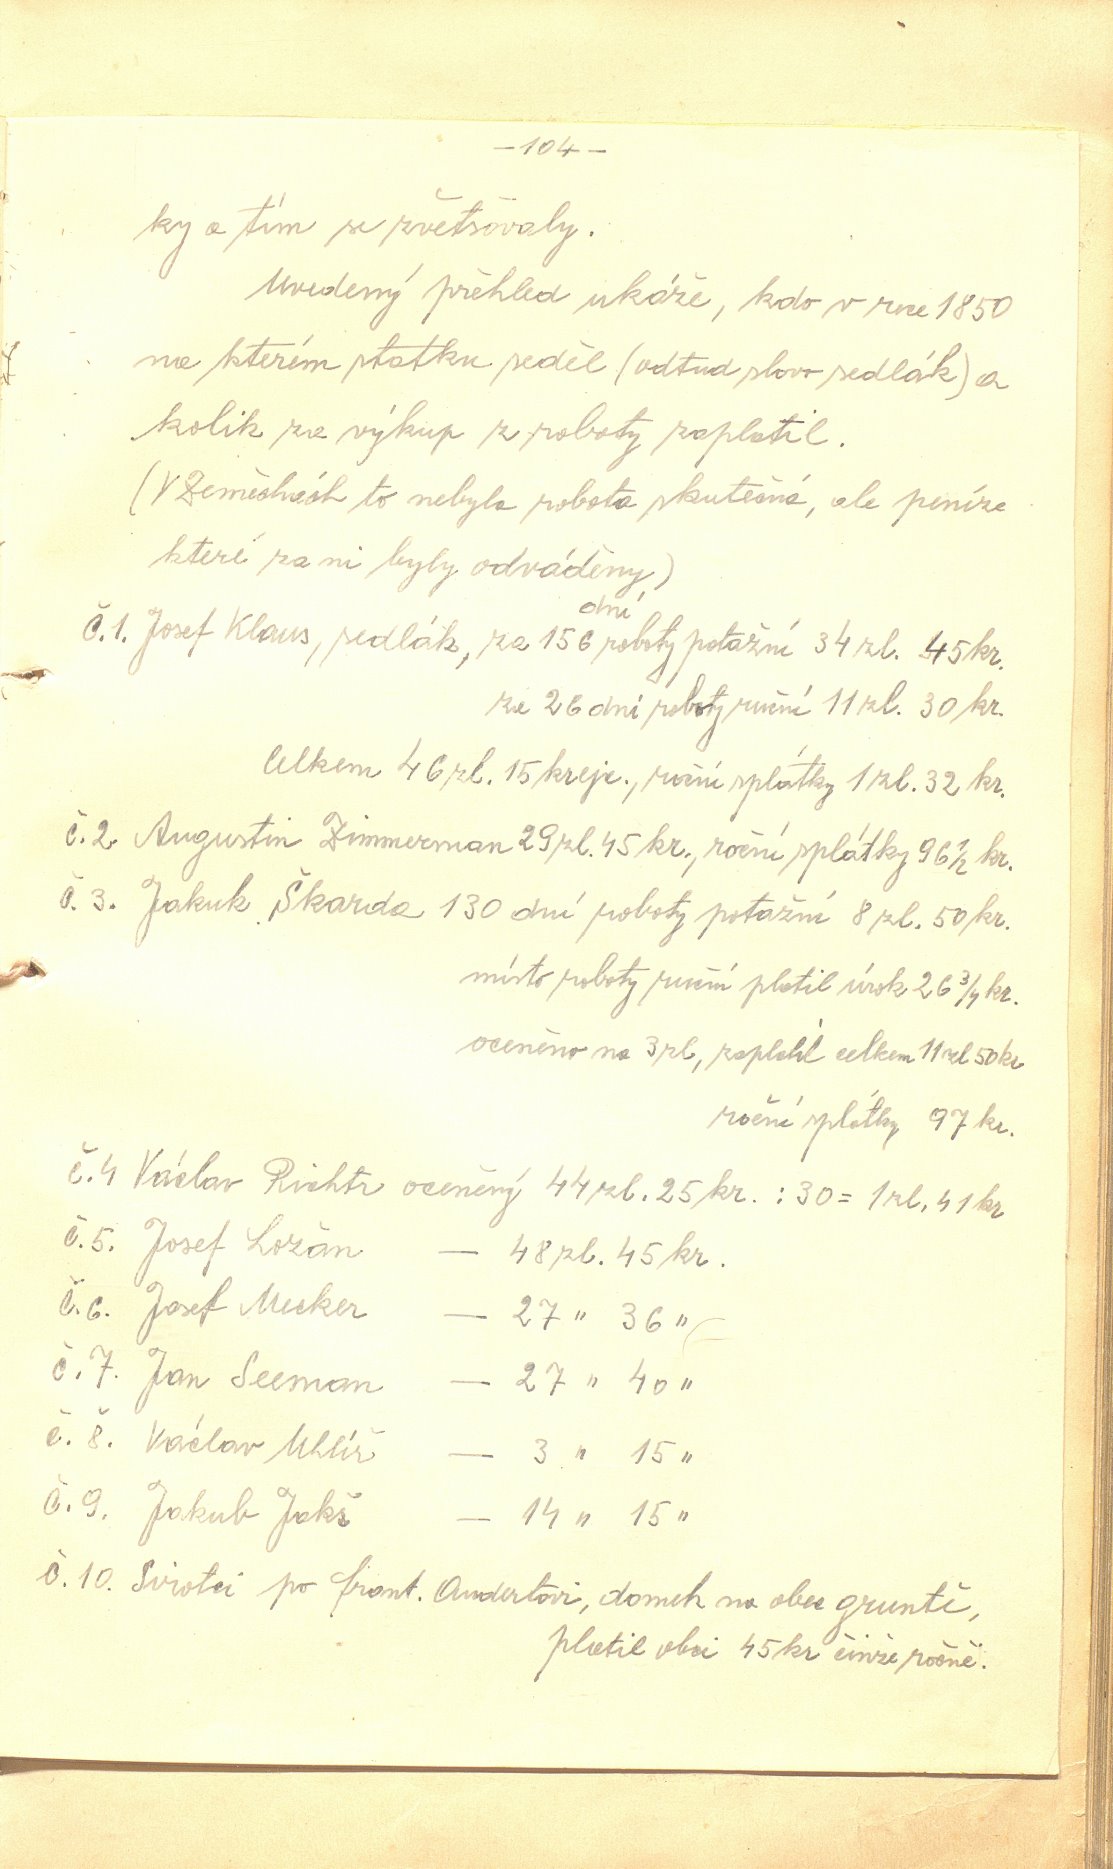 -104-
ky a tím se zvětšovaly.
Uvedený přehled ukáže, kdo v roce 1850
na kterém statku seděl (odtud slovo sedlák) a
kolik za výkup z roboty zaplatil.
(V Zeměchách to nebyla robota skutečná, ale peníze
které za ni byly odváděny)
dní
č.1. Josef Klaus, sedlák, za 156 roboty potažní 34 zl. 45 kr.
za 26 dní roboty ruční 11 zl. 30 kr.
Celkem 46 zl. 15 krejc., roční splátky 1 zl. 32 kr.
č.2. Augustin Zimmerman 29 zl. 45 kr., roční splátky 96 1/2 kr.
č.3. Jakub Škarda 130 dní roboty potažní 8 zl. 50 kr.
místo roboty ruční platil úrok 26 3/4 kr.
oceněno na 3 zl, zaplatil celkem 11 zl 50 kr
roční splátky 97 kr.
č.4 Václav Richtr oceněný 44 zl. 25 kr. : 30 = 1 zl. 41 kr
č.5. Josef Ložan — 48 zl. 45 kr.
č.6. Josef Mecker — 27 " 36 "
č.7. Jan Seeman — 27 " 40 "
č.8. Václav Uhlíř — 3 " 15 "
č.9. Jakub Jakš — 14 " 15 "
č.10. Sirotci po Frant. Audertovi, domek na obec gruntě,
platil obci 45 kr činže ročně.